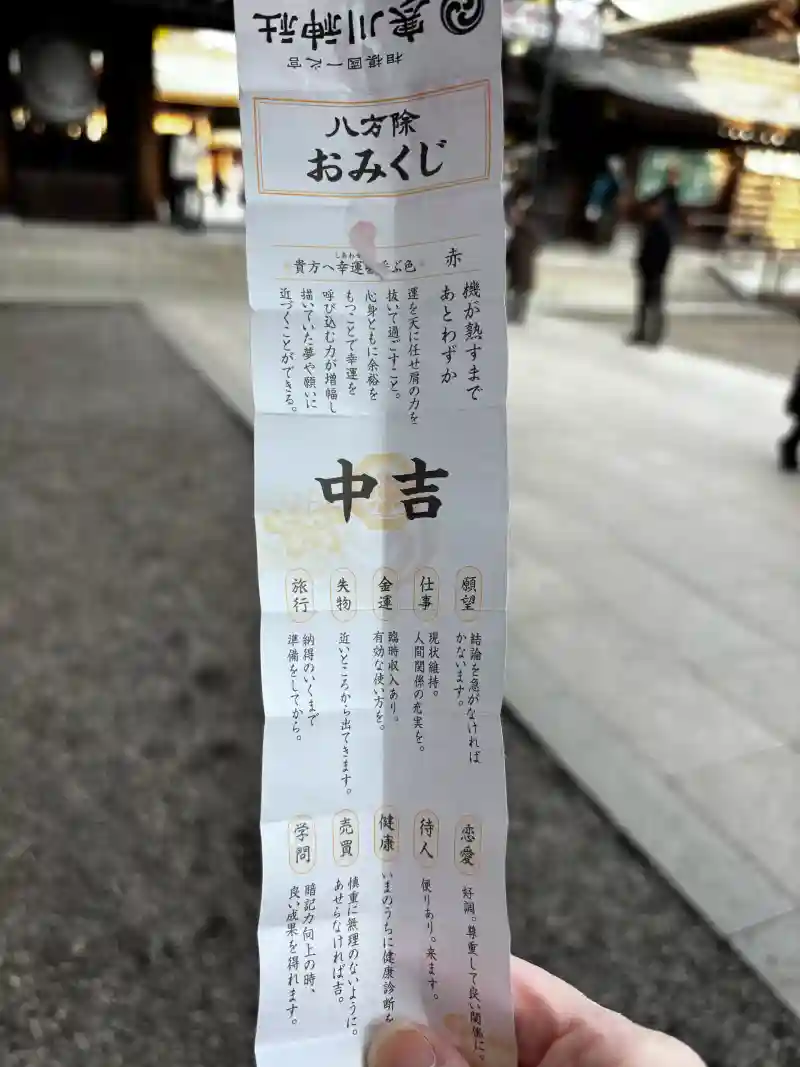 寒川神社
相模國一之宮
八方除
おみくじ
しあわせ
貴方へ幸運を呼ぶ色
赤
機が熟すまで
あとわずか
運を天に任せ肩の力を
抜いて過ごすこと。
心身ともに余裕を
もつことで幸運を
呼び込む力が増幅し
描いていた夢や願いに
近づくことができる。
中吉
願望
結論を急がなければ
かないます。
仕事
現状維持。
人間関係の充実を。
金運
臨時収入あり。
有効な使い方を。
失物
近いところから出てきます。
旅行
納得のいくまで
準備をしてから。
恋愛
好調。尊重して良い関係に。
待人
便りあり。来ます。
健康
いまのうちに健康診断を
売買
慎重に無理のないように。
あせらなければ吉。
学問
暗記力向上の時、
良い成果を得れます。